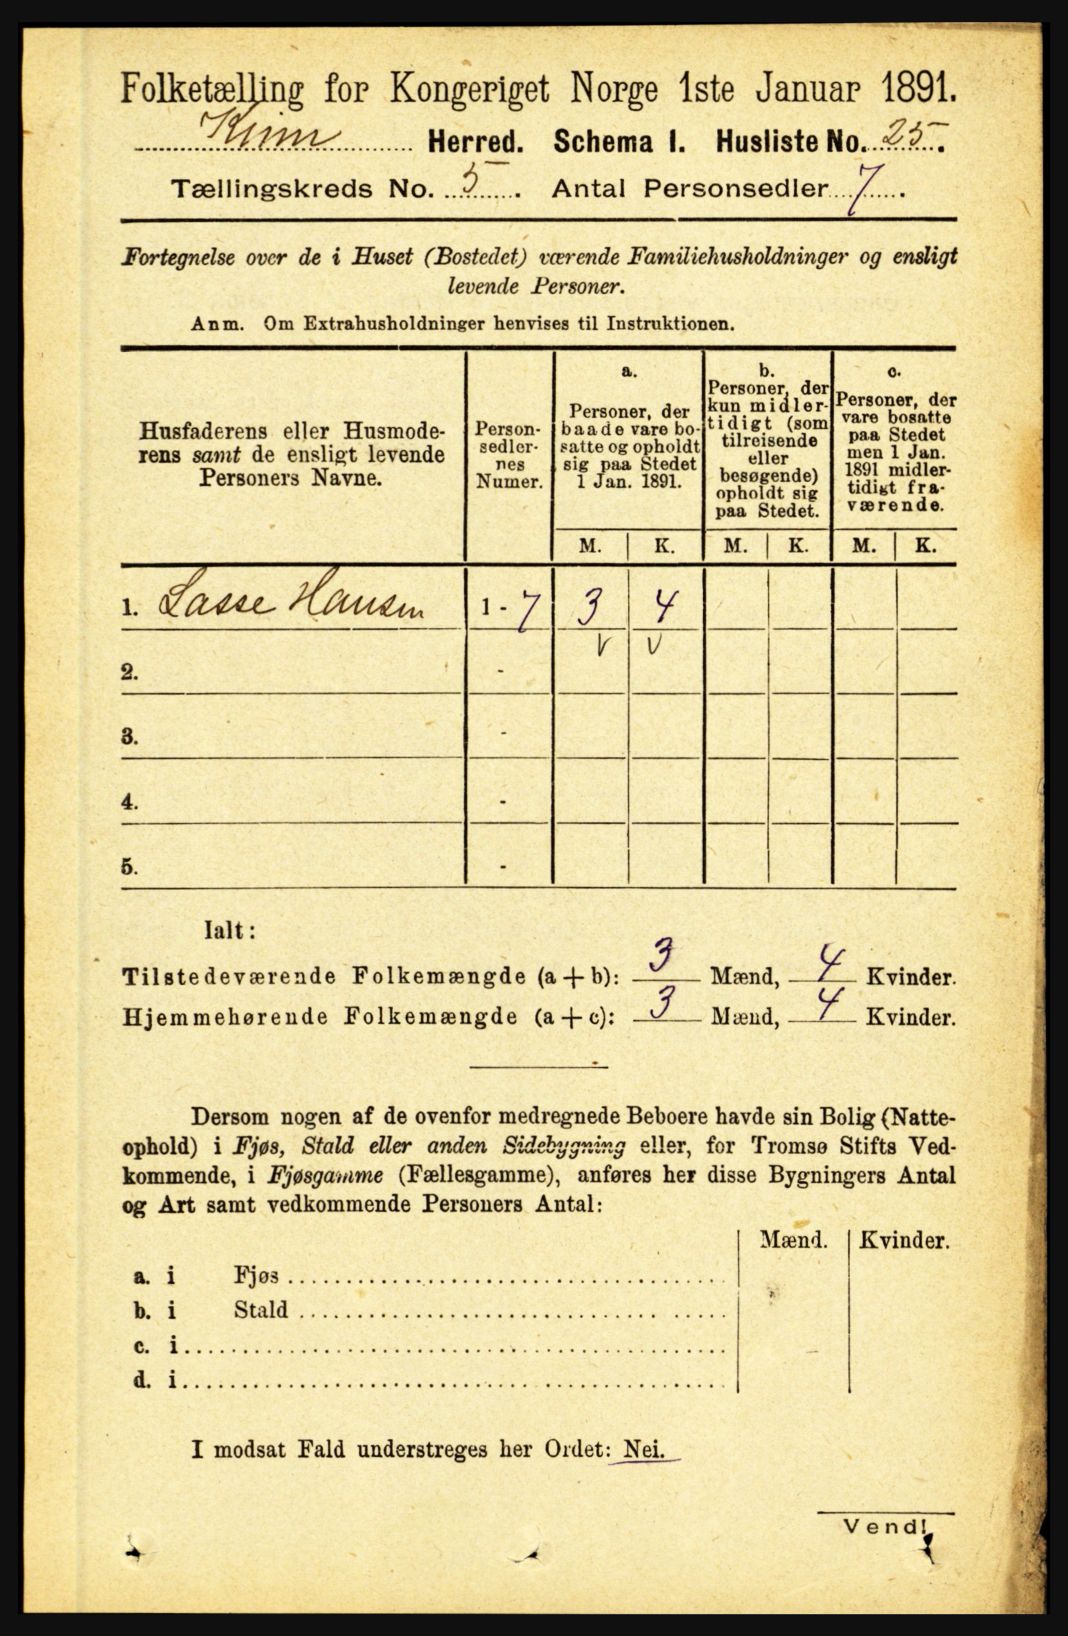 Folketælling for Kongeriget Norge 1ste Januar 1891.
Kinn Herred. Schema I. Husliste No. 25.
Tællingskreds No. 5. Antal Personsedler 7.
Fortegnelse over de i Huset (Bostedet) værende Familiehusholdninger og ensligt
levende Personer.
Anm. Om Extrahusholdninger henvises til Instruktionen.
Husfaderens eller Husmode-
rens samt de ensligt levende
Personers Navne.
Person-
sedler-
nes
Numer.
a.
Personer, der
baade vare bo-
satte og opholdt
sig paa Stedet
1 Jan. 1891.
b.
Personer, der
kun midler-
tidigt (som
tilreisende
eller
besøgende)
opholdt sig
paa Stedet.
c.
Personer, der
vare bosatte
paa Stedet
men 1 Jan.
1891 midler-
tidigt fra-
værende.
M. K. M. K. M. K.
1. Lasse Hansen 1 - 7 3 4
v v
2. -
3. -
4. -
5. -
Ialt:
Tilstedeværende Folkemængde (a + b): 3 Mænd, 4 Kvinder.
Hjemmehørende Folkemængde (a + c): 3 Mænd, 4 Kvinder.
Dersom nogen af de ovenfor medregnede Beboere havde sin Bolig (Natte-
ophold) i Fjøs, Stald eller anden Sidebygning eller, for Tromsø Stifts Ved-
kommende, i Fjøsgamme (Fællesgamme), anføres her disse Bygningers Antal
og Art samt vedkommende Personers Antal:
Mænd. Kvinder.
a. i Fjøs
b. i Stald
c. i
d. i
I modsat Fald understreges her Ordet: Nei.
Vend!